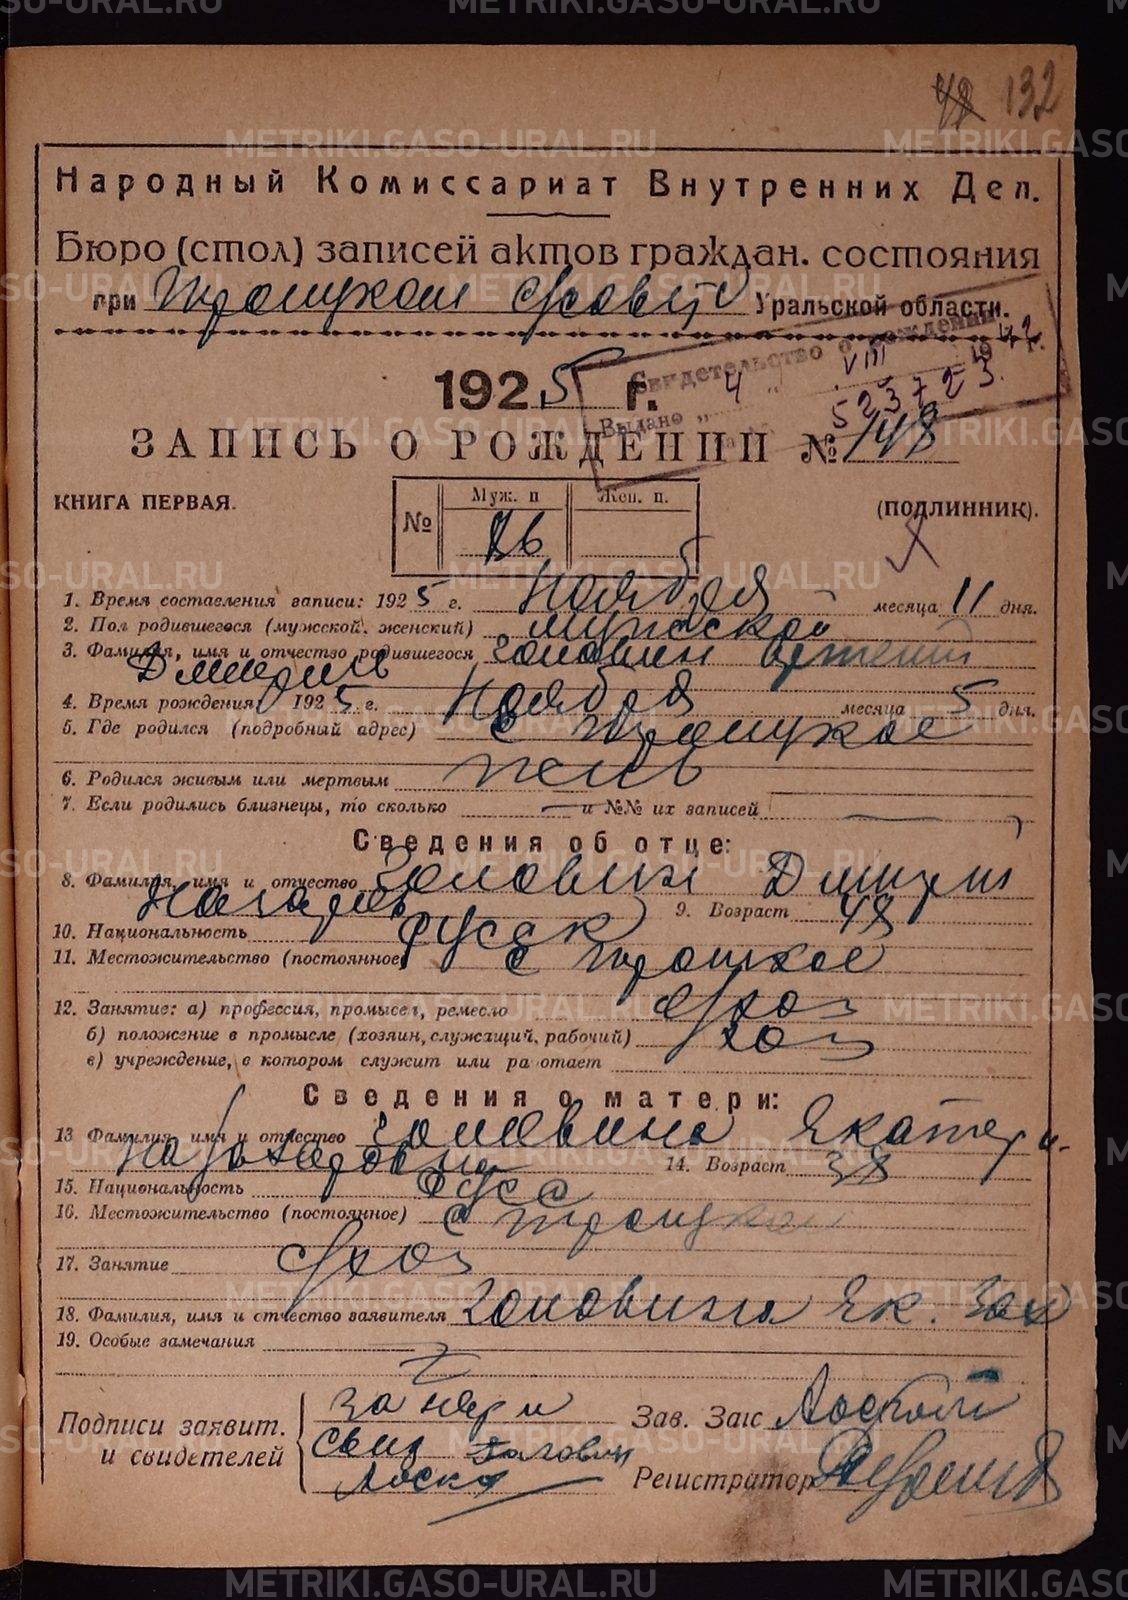 132
Народный Комиссариат Внутренних Дел.
Бюро (стол) записей актов граждан. состояния
при Троицком с/совете Уральской области.
Свидетельство о рождении
1925 г.
Выдано " 4 " VIII 1942 г.
523723
ЗАПИСЬ О РОЖДЕНИИ № 148
КНИГА ПЕРВАЯ.
(подлинник).
№ Муж. п Жен. п.
1. Время составления записи: 1925 г. Ноября месяца 11 дня.
2. Пол родившегося (мужской, женский) мужской
3. Фамилия, имя и отчество родившегося Головин
Дмитрив
4. Время рождения: 1925 г. Ноября месяца 5 дня.
5. Где родился (подробный адрес) с Троицкое
6. Родился живым или мертвым
7. Если родились близнецы, то сколько — и №№ их записей —
Сведения об отце:
8. Фамилия, имя и отчество Головин Дмитрий
9. Возраст 48
10. Национальность русск
11. Местожительство (постоянное) с Троицкое
12. Занятие: а) профессия, промысел, ремесло с/хоз
б) положение в промысле (хозяин, служащий, рабочий) хоз
в) учреждение, в котором служит или ра отает
Сведения о матери:
13 Фамилия, имя и отчество Головина Екатери-
на 14. Возраст 38
15. Национальность русс
16. Местожительство (постоянное) с Троицком
17. Занятие с/хоз
18. Фамилия, имя и отчество заявителя Головина Ек. Зах
19. Особые замечания
Подписи заявит.
и свидетелей
за негр и
свид Головин
Лоск
Зав. Загс
Регистратор
METRIKI.GASO-URAL.RU